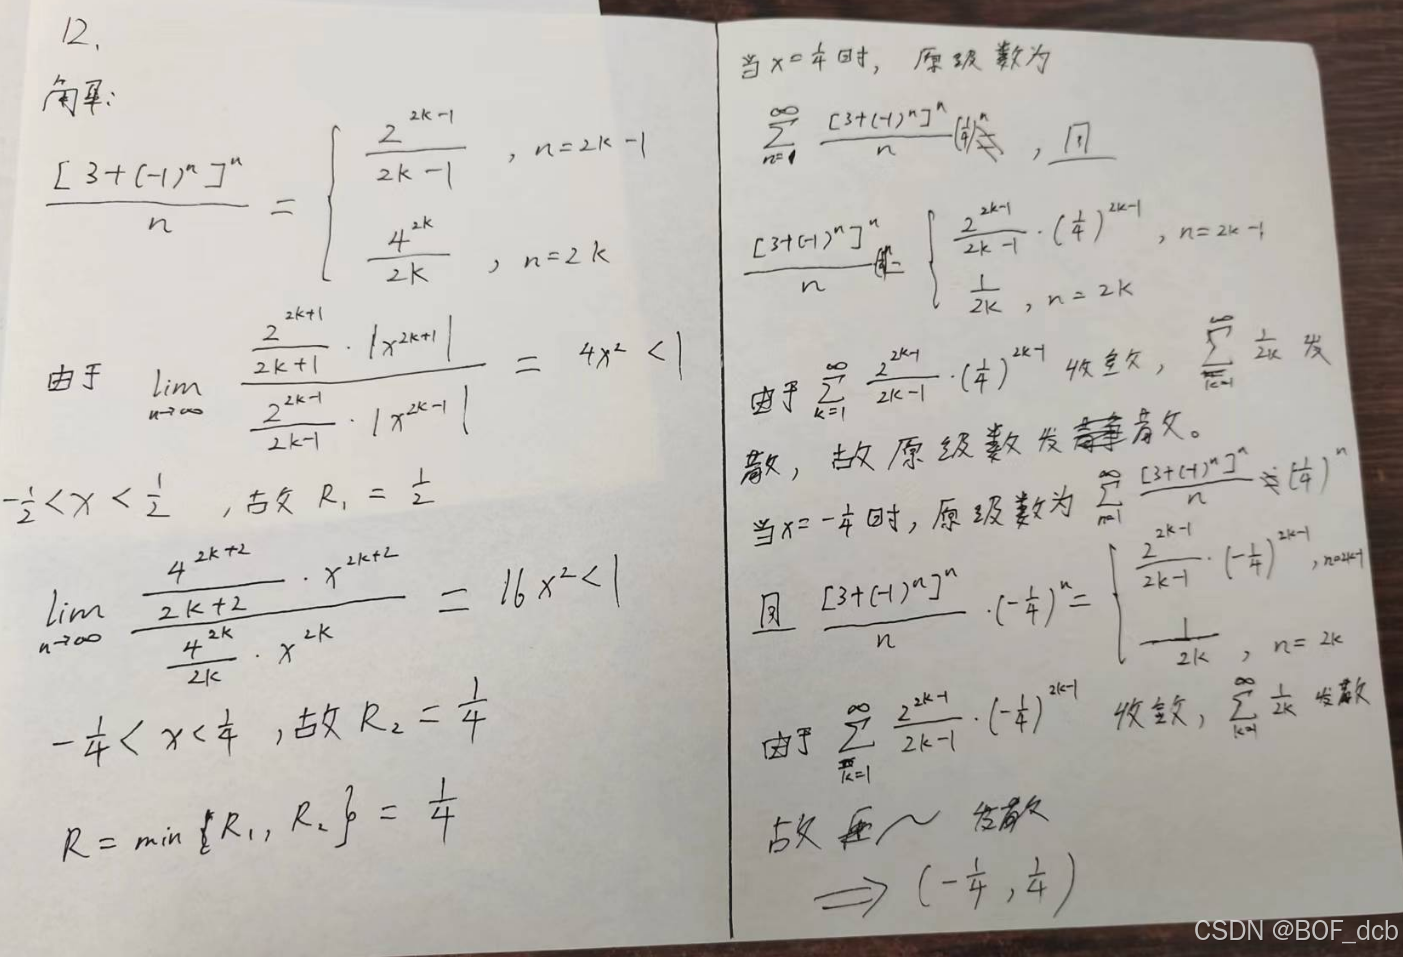 12.
解:
[3+(-1)^n]^n / n = { 2^{2k-1} / (2k-1) , n=2k-1
4^{2k} / 2k , n=2k
由于 lim_{n→∞} (2^{2k+1}/(2k+1) · |x^{2k+1}|) / (2^{2k-1}/(2k-1) · |x^{2k-1}|) = 4x² < 1
-1/2 < x < 1/2 , 故 R₁ = 1/2
lim_{n→∞} (4^{2k+2}/(2k+2) · x^{2k+2}) / (4^{2k}/2k · x^{2k}) = 16x² < 1
-1/4 < x < 1/4 , 故 R₂ = 1/4
R = min {R₁, R₂} = 1/4
当 x = 1/4 时, 原级数为
∑_{n=1}^{∞} [3+(-1)^n]^n / n (1/4)^n ,
[3+(-1)^n]^n / n = { 2^{2k-1}/(2k-1) · (1/4)^{2k-1} , n=2k-1
1/2k , n=2k
由于 ∑_{k=1}^{∞} 2^{2k-1}/(2k-1) · (1/4)^{2k-1} 收敛, ∑_{k=1}^{∞} 1/2k 发
散, 故原级数发散。
当 x = -1/4 时, 原级数为 ∑_{n=1}^{∞} [3+(-1)^n]^n / n (1/4)^n
[3+(-1)^n]^n / n · (-1/4)^n = { 2^{2k-1}/(2k-1) · (-1/4)^{2k-1} , n=2k-1
1/2k , n=2k
由于 ∑_{k=1}^{∞} 2^{2k-1}/(2k-1) · (-1/4)^{2k-1} 收敛, ∑_{k=1}^{∞} 1/2k 发散
故 ~ 发散
⟹ (-1/4, 1/4)
CSDN @BOF_dcb